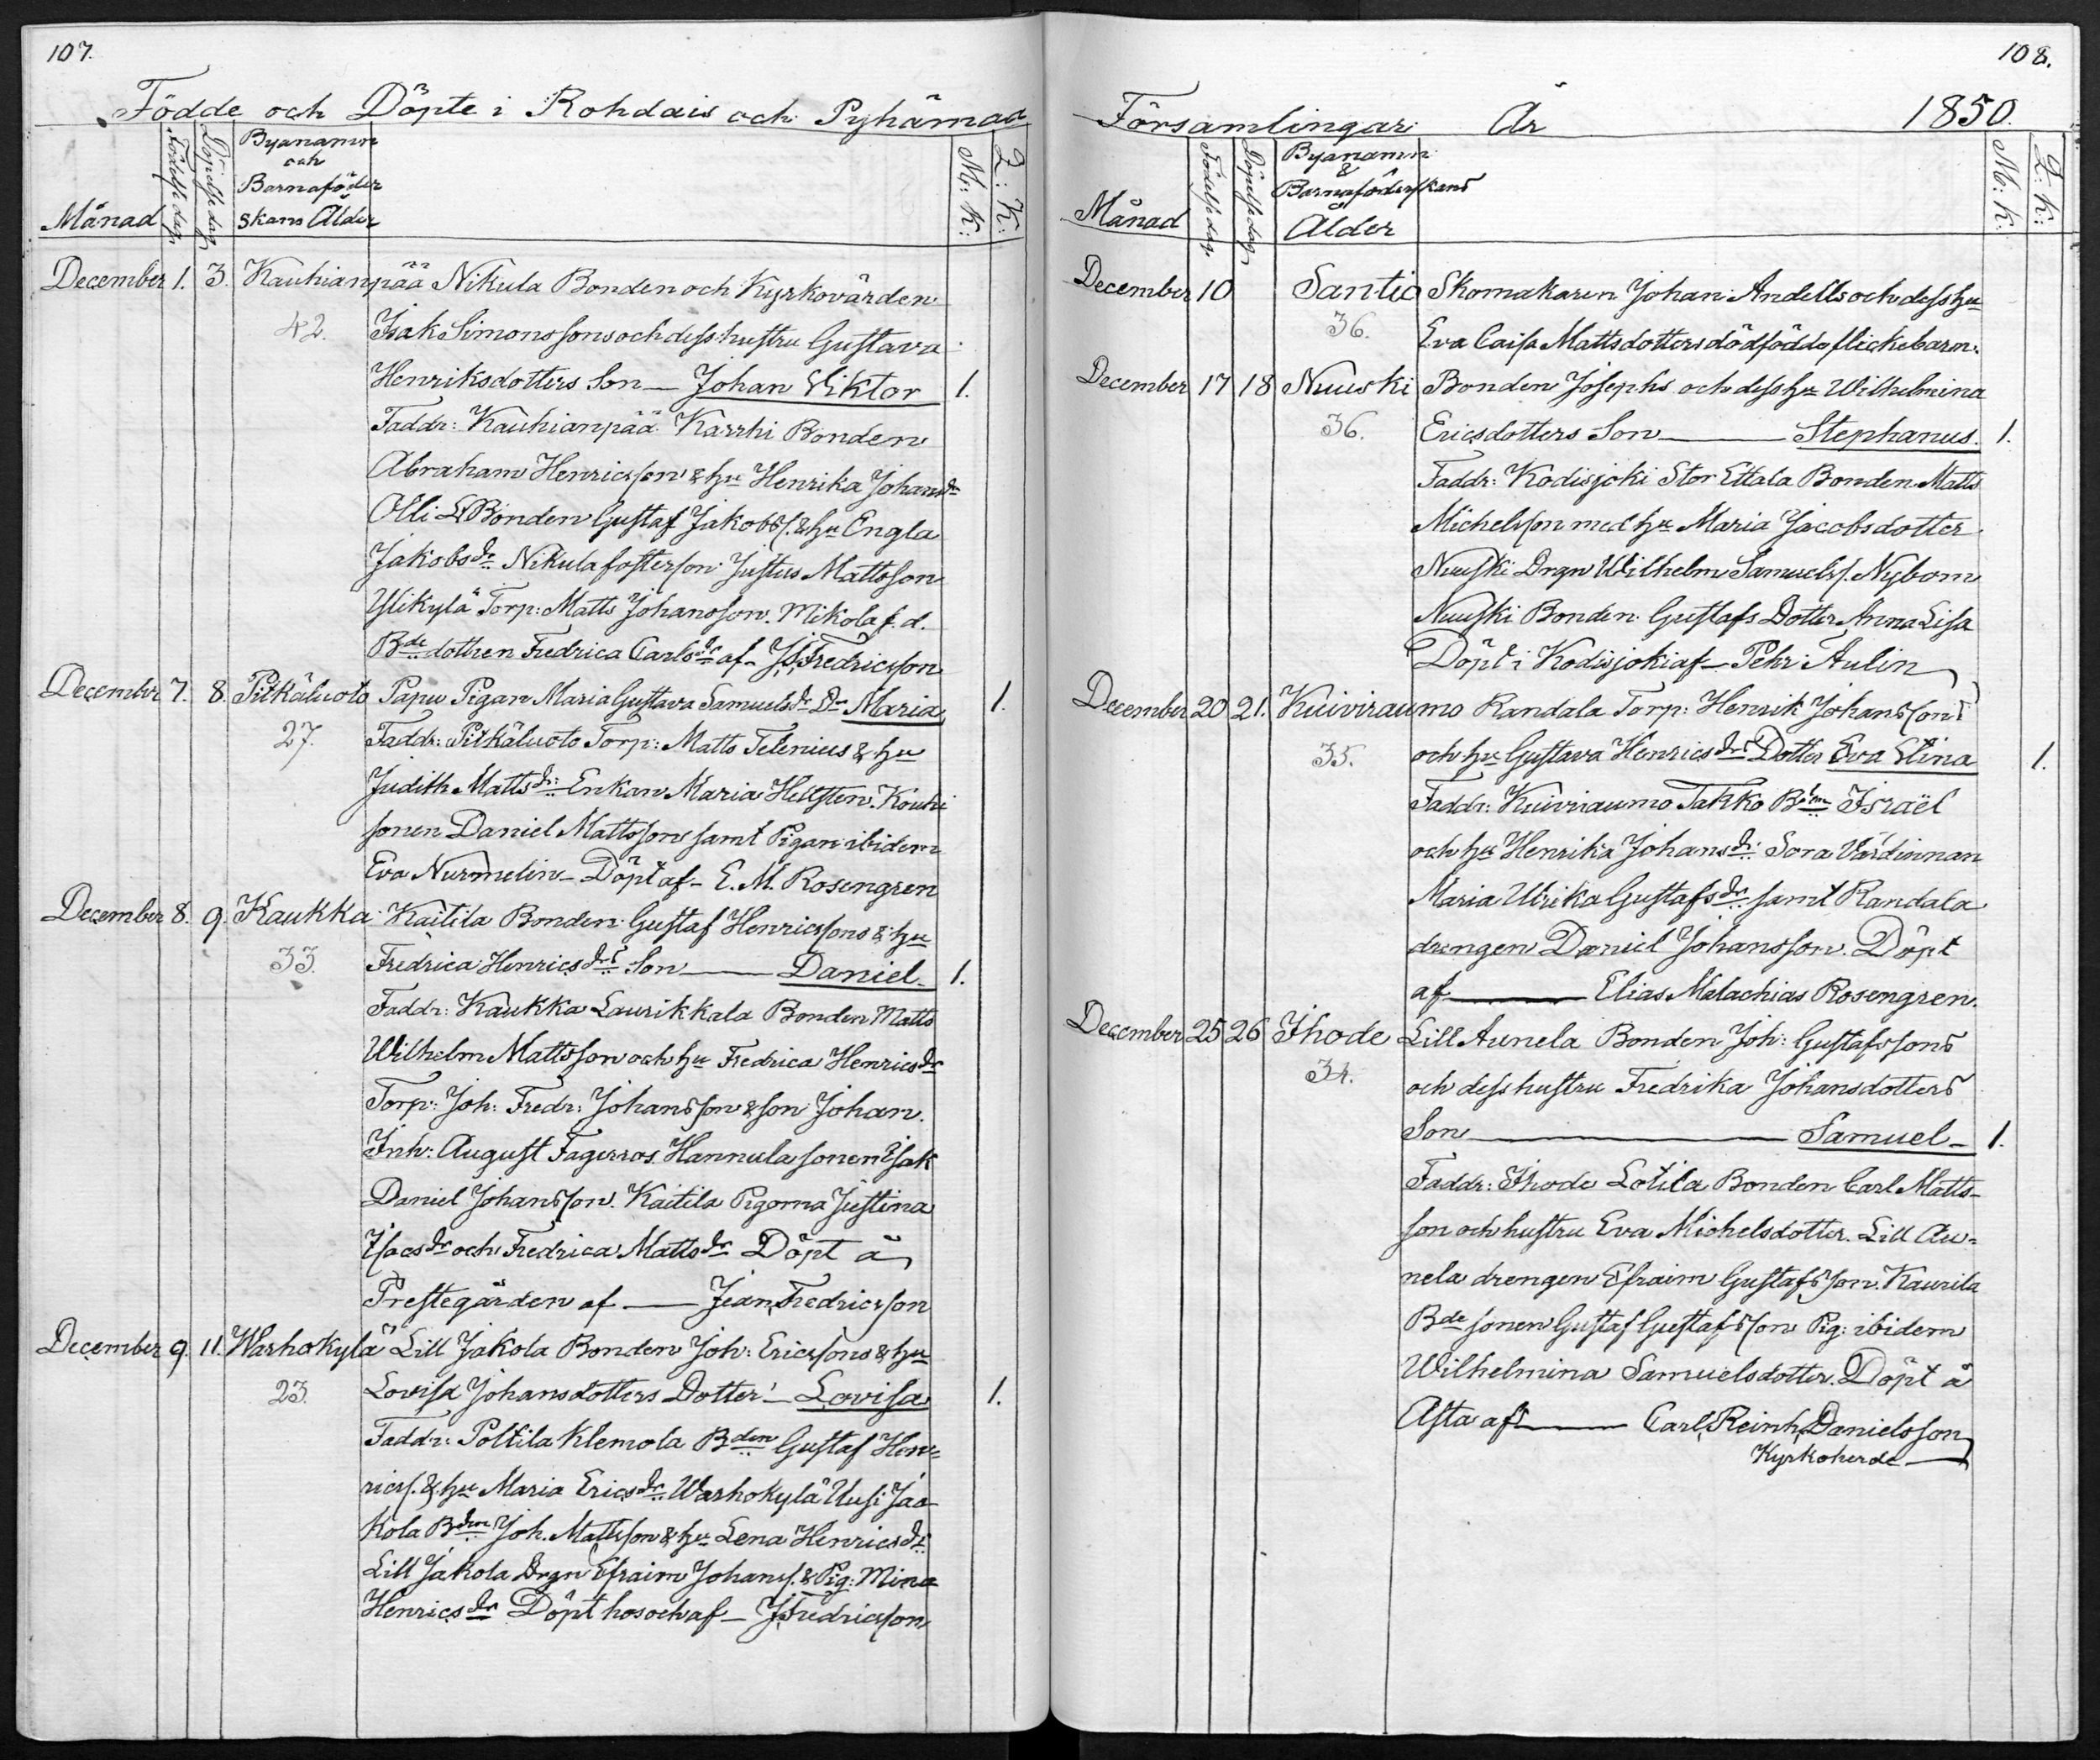 107.
Födde och Döpte i Rohdais och Pyhämaa
Månad
Födelse dag.
Döpelse dag
Byanamn
och
Barnaföder
skans Ålder
M: K:
Q: K:
December 1. 3. Kauhianpää Nikula Bonden och Kyrkovärden
42. Isak Simonssons och dess hustru Gustava
Henriksdotters Son — Johan Viktor 1.
Faddr: Kauhianpää Karrhi Bonden
Abraham Henricsson & hu Henrika Johansdr
Olli Bonden Gustaf Jakobss. & hu Engla
Jakobsdr Nikula fosterson Justus Mattsson
Ylikylä Torp: Matts Johansson. Mikola f. d.
Bde dottren Fredrica Carlsdr af - J. Fredricsson
December 7. 8. Pitkäluoto Papu Pigan Maria Gustava Samuelsdr Dr Maria 1.
27. Faddr: Pitkäluoto Torp: Matts Telenius & hu
Judith Mattsdr: Enkan Maria Hellsten. Kouhi
sonen Daniel Mattsson samt Pigan ibidem
Eva Nurmelin - Döpt af - E. M. Rosengren
December 8. 9. Kaukka Kaitila Bonden Gustaf Henricssons & hu
33. Fredrica Henricsdrs Son — Daniel 1.
Faddr: Kaukka Laurikkala Bonden Matts
Wilhelm Mattsson och hu Fredrica Henricsdr
Torp: Joh: Fredr: Johansson & son Johan.
Inh: August Fagerros. Hannula sonen Isak
Daniel Johansson. Kaitila Pigorna Justina
Isacsdr och Fredrica Mattsdr Döpt å
Prestegården af — Jean Fredricsson
December 9. 11. Warhokylä Lill Jakola Bonden Joh: Ericssons & hu
23. Lovisa Johansdotters Dotter - Lovisa 1.
Faddr: Poltila Klemola Bden Gustaf Hen=
ricss. & hu Maria Ericsdr Warhokylä Uusi Jaa
kola Bden Joh. Mattsson & hu Lena Henricsdr
Lill Jakola Drgn Efraim Johanss. & Pig: Mina
Henricsdr Döpt hos och af - J. Fredricsson
108.
Församlingar År 1850.
Månad
Födelse dag.
Döpelse dag
Byanamn
&
Barnaföderskans
Ålder
M: K:
Q: K:
December 10 Santio Skomakaren Johan Andells och dess hu
36. Eva Caisa Mattsdotters dödfödda flickebarn.
December 17 18 Nuuski Bonden Josephs och dess hu Wilhelmina
36. Ericsdotters Son — Stephanus. 1.
Faddr: Kodisjoki Stor Ettala Bonden Matts
Michelsson med hu Maria Jacobsdotter
Nuuski Drgn Wilhelm Samuelss. Nybom
Nuuski Bonden Gustafs Dotter Anna Lisa
Döpt i Kodisjoki af — Pehr Aulin
December 20 21. Kuiviraumo Randala Torp: Henrik Johanssons
35. och hu Gustava Henricsdrs Dotter Eva Stina 1.
Faddr: Kuiviraumo Takko Bden Israël
och hu Henrika Johansdr: Sora Värdinnan
Maria Ulrika Gustafsdr samt Randala
drengen Daniel Johansson. Döpt
af — Elias Malachias Rosengren.
December 25 26 Ihode Lill Aunela Bonden Joh: Gustafssons
34. och dess hustru Fredrika Johansdotters
Son — Samuel - 1.
Faddr: Ihode Lotila Bonden Carl Matts-
son och hustru Eva Michelsdotter. Lill Au=
nela drengen Efraim Gustafsson. Kaurila
Bde sonen Gustaf Gustafsson Pig: ibidem
Wilhelmina Samuelsdotter. Döpt å
Asta af — Carl Reinh. Danielsson
Kyrkoherde —